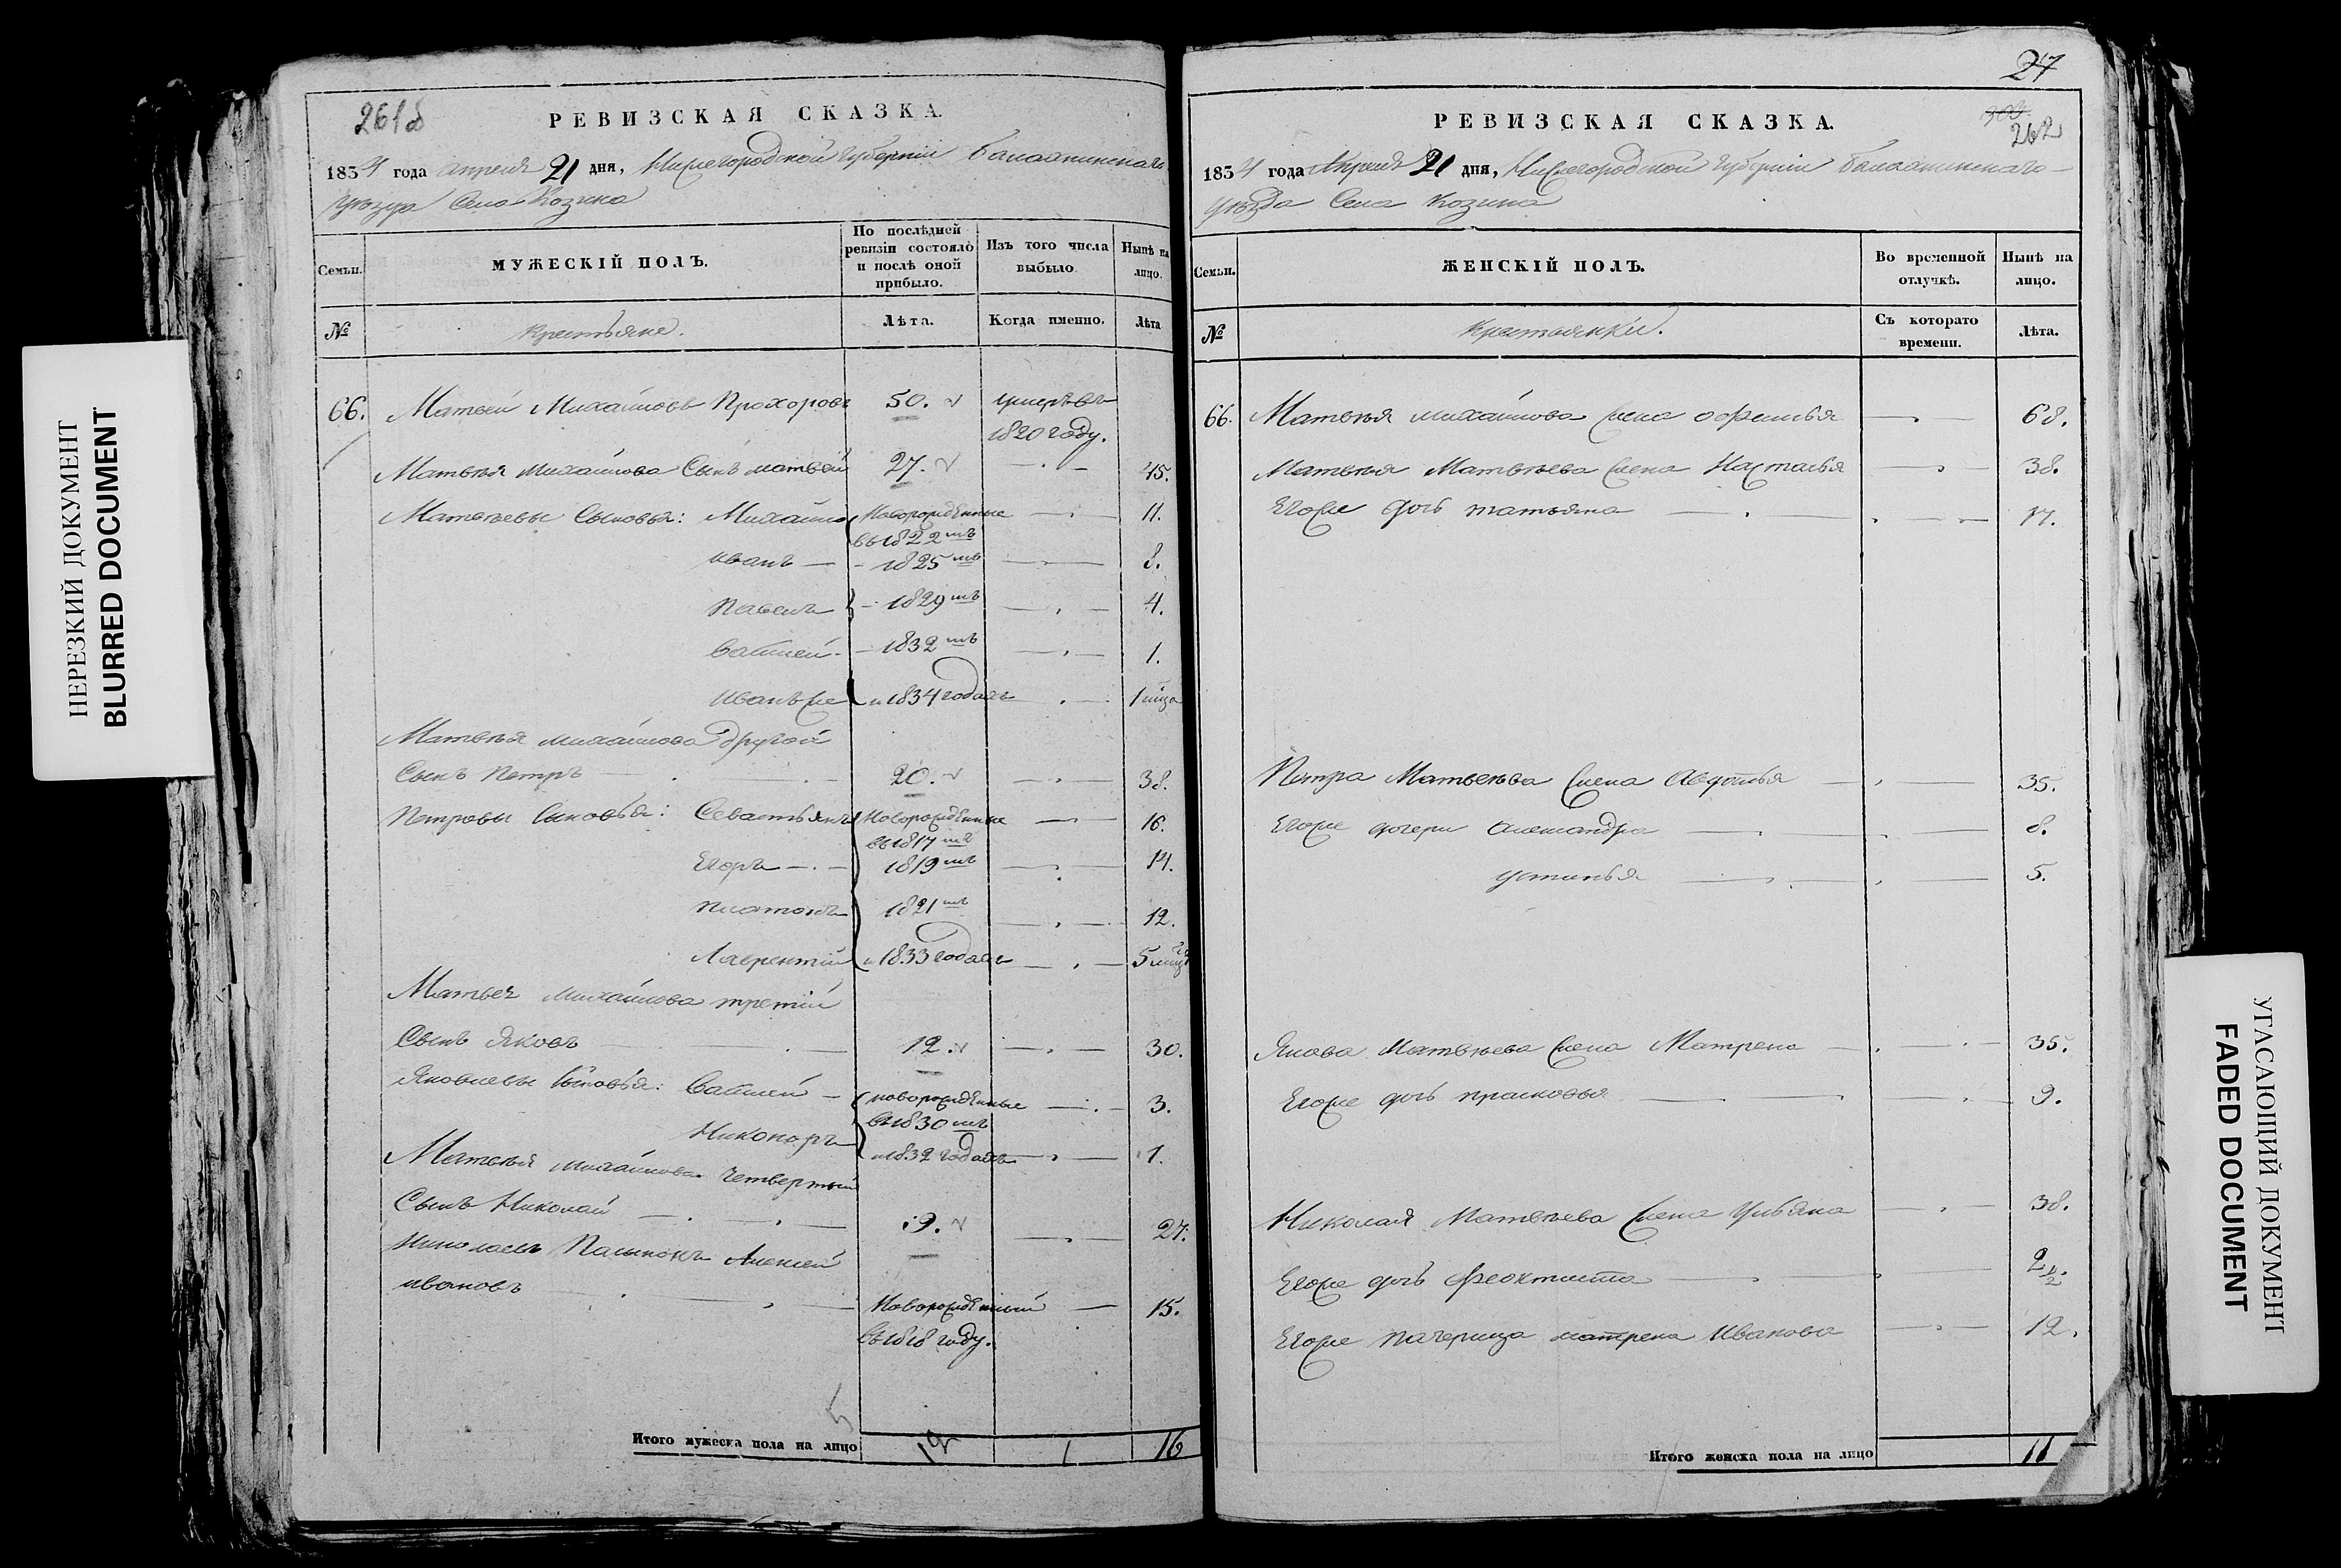 НЕРЕЗКИЙ ДОКУМЕНТ
BLURRED DOCUMENT
261об
РЕВИЗСКАЯ СКАЗКА.
1834 года апреля 21 дня, Нижегородской губернiи Балахнинскаго
уѣзда Села Козина
Семьи.
МУЖЕСКІЙ ПОЛЪ.
По послѣдней ревизіи состояло и послѣ оной прибыло.
Изъ того числа выбыло.
Нынѣ на лицо.
№
крестьяне.
Лѣта.
Когда именно.
Лѣта
66. Матвей Михайловъ Прохоровъ 50. умеръ въ
1820 году.
Матвѣя Михайлова Сынъ матвѣй 27. 45.
Матвѣевы Сыновья: Михайло Новорожденные 11.
въ 1822 мъ
иванъ 1825 мъ 8.
павелъ 1829 мъ 4.
Василей 1832 мъ 1.
Иванъ же и 1834 годахъ 1 мѣца
Матвѣя михайлова другой
Сынъ Петръ 20. 38.
Петровы Сыновья: Севастьянъ Новорожденные 16.
въ 1817 мъ
Егоръ 1819 мъ 14.
платонъ 1821 мъ 12.
Лаврентiй и 1833 годахъ 5 мѣц
Матвея михайлова третiй
Сынъ Яковъ 12. 30.
Яковлевы Сыновья: Василей новорожденные 3.
въ 1830 мъ
Никоноръ и 1832 годахъ 1.
Матвѣя михайлова четвертый
Сынъ Николай 9. 27.
Николаевъ Пасынокъ Алексей
ивановъ Новорожденный 15.
въ 1818 году.
Итого мужеска пола на лицо 1 16
27
262
РЕВИЗСКАЯ СКАЗКА.
1834 года Апреля 21 дня, Нижегородской губернiи Балахнинскаго
уѣзда Села Козина
Семьи.
ЖЕНСКІЙ ПОЛЪ.
Во временной отлучкѣ.
Нынѣ на лицо.
№
крестьянки.
Съ котораго времени.
Лѣта.
66. Матвѣя михайлова жена офимья 68.
Матвѣя Матвѣева жена Настасья 38.
Егоже дочь татьяна 17.
Петра Матвеева жена Авдотья 35.
Егоже дочери Александра 8.
устинья 5.
Якова Матвѣева жена Матрена 35.
Егоже дочь прасковья 9.
Николая Матвѣева жена Ульяна 38.
Егоже дочь Феоктиста 2 1/2.
Егоже пачерица матрена Иванова 12.
Итого женска пола на лицо 11
УГАСАЮЩИЙ ДОКУМЕНТ
FADED DOCUMENT